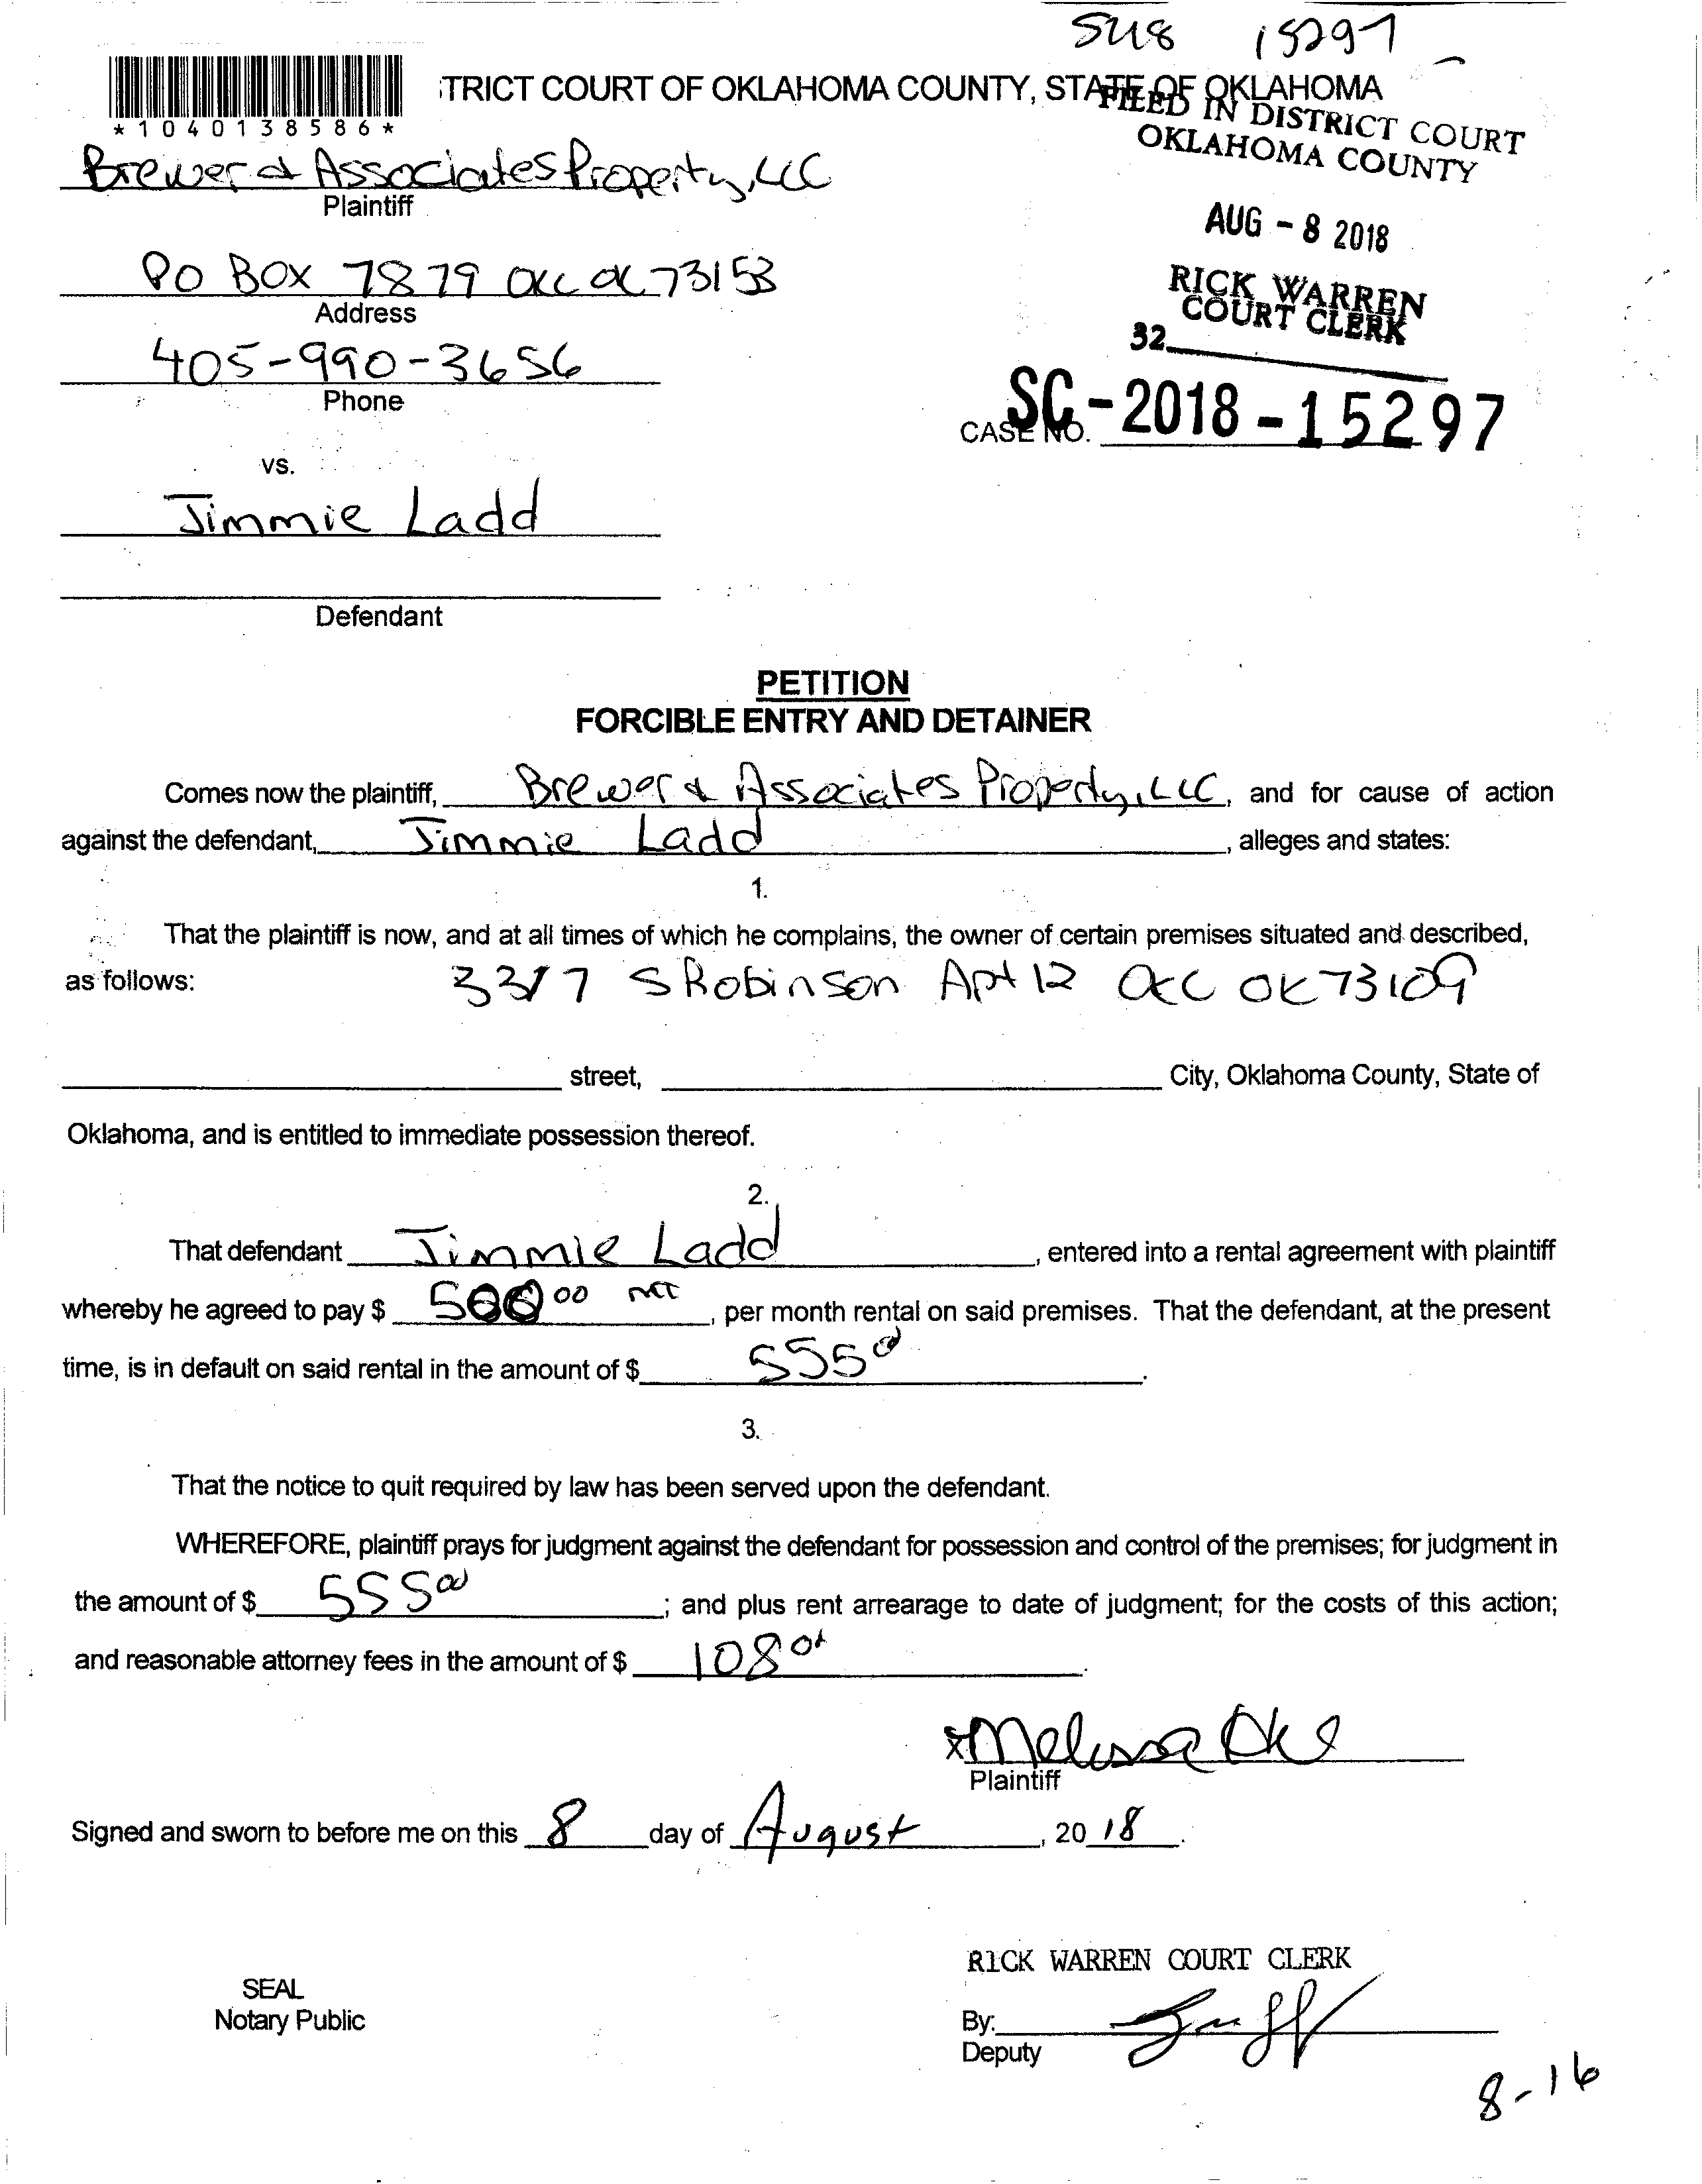 SC18 15297
TRICT COURT OF OKLAHOMA COUNTY, STATE OF OKLAHOMA
*1040138586*
FILED IN DISTRICT COURT
OKLAHOMA COUNTY
Brewer & Associates Property, LLC
Plaintiff
AUG - 8 2018
PO BOX 7879 OKC OK 73153
Address
RICK WARREN
COURT CLERK
32
405-990-3656
Phone
CASE NO. SC-2018-15297
vs.
Jimmie Ladd
Defendant
PETITION
FORCIBLE ENTRY AND DETAINER
Comes now the plaintiff, Brewer & Associates Property, LLC, and for cause of action
against the defendant, Jimmie Ladd, alleges and states:
1.
That the plaintiff is now, and at all times of which he complains, the owner of certain premises situated and described,
as follows: 3317 S Robinson Apt 12 OKC OK 73109
street, City, Oklahoma County, State of
Oklahoma, and is entitled to immediate possession thereof.
2.
That defendant Jimmie Ladd, entered into a rental agreement with plaintiff
whereby he agreed to pay $ 500 00, per month rental on said premises. That the defendant, at the present
time, is in default on said rental in the amount of $ 555 00.
3.
That the notice to quit required by law has been served upon the defendant.
WHEREFORE, plaintiff prays for judgment against the defendant for possession and control of the premises; for judgment in
the amount of $ 555 00; and plus rent arrearage to date of judgment; for the costs of this action;
and reasonable attorney fees in the amount of $ 108 00.
x Melissa
Plaintiff
Signed and sworn to before me on this 8 day of August, 20 18.
RICK WARREN COURT CLERK
SEAL
Notary Public
By:
Deputy
8-16